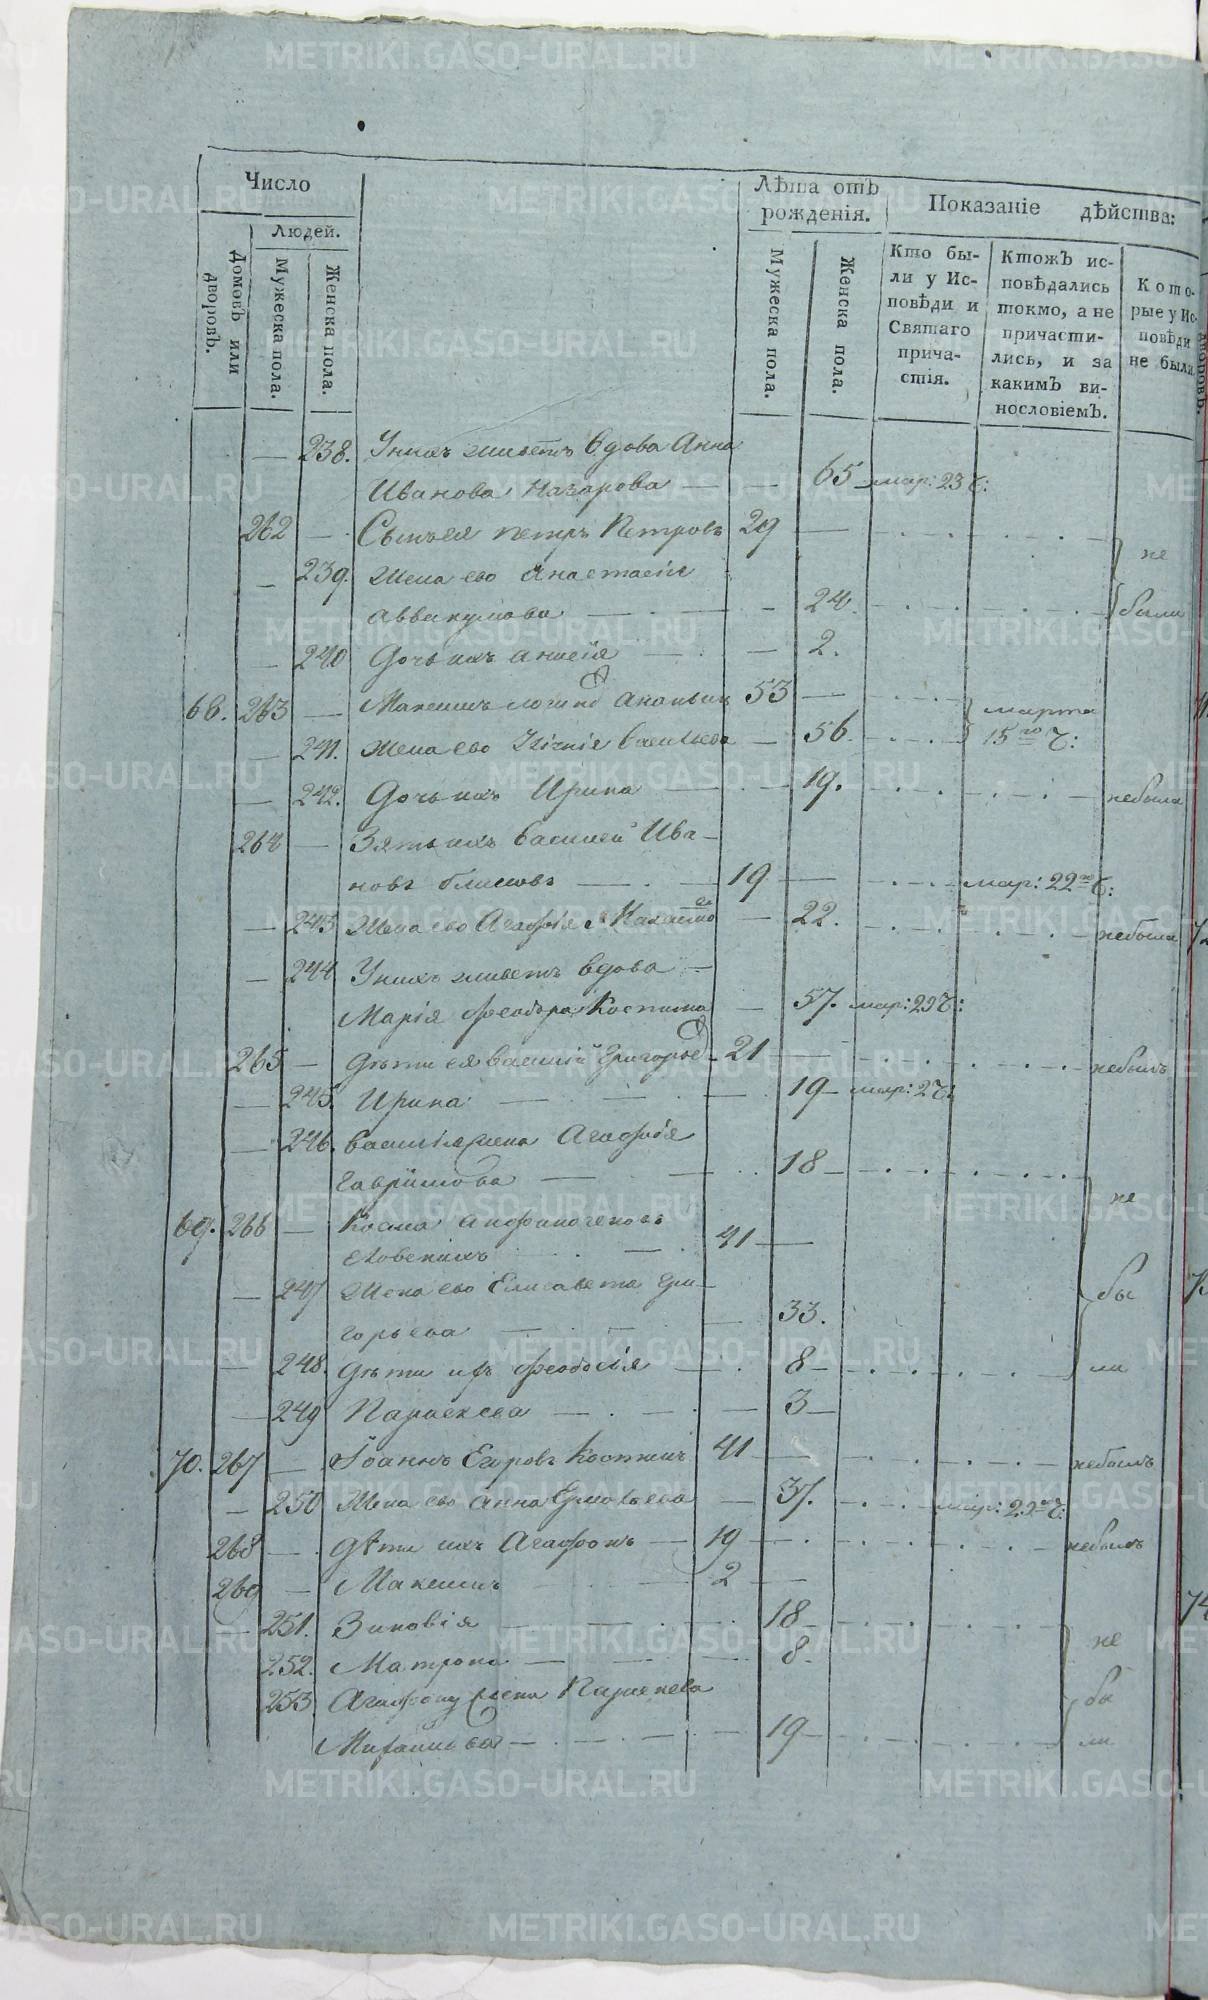 Число
Лѣта отъ рожденія.
Показаніе дѣйства:
Людей.
Домовъ или дворовъ.
Мужеска пола.
Женска пола.
Мужеска пола.
Женска пола.
Кто были у Исповѣди и Святаго причастія.
Ктожъ исповѣдались токмо, а не причастились, и за какимъ винословіемъ.
Которые у Исповѣди не были.
238. Унихъ живетъ вдова Анна
Иванова Назарова — 65 мар: 23 ч:
262 — Сынъ ея петръ Петровъ 29 —
не
— 239. Жена ево Анастасіи
Аввакумова — 24. были
— 240 Дочь ихъ — 2.
68. 263 — 53 — марта
— 241. Жена ево — 56. 15го ч:
— 242. Дочь ихъ Ирина — 19. небыла
264 — Зять ихъ василей Ива-
новъ — 19 — мар: 22го ч:
— 243 Жена ево Агафія — 22. небыла
— 244 Унихъ живетъ вдова —
Марія феодора Костина — 57. мар: 29 ч:
265 — дѣти ея василій Григорьев 21 — небылъ
— 245. Ирина — 19 — мар: 2 ч:
— 246. жена Агафія
гавріилова — 18 —
не
69. 266 — Косма
41 —
— 247 Жена ево Елисавета Гри-
бы
горьева — 33.
— 248. дѣти ихъ феодосія — 8 — ли
— 249 Параскева — 3 —
70. 267 — Іоаннъ Егоровъ Костинъ 41 — небылъ
— 250 Жена ево Анна Ермолаева — 37. мар: 22го ч:
268 — дѣти ихъ Агафонъ — 19 — небылъ
269 — Максимъ 2 —
— 251. Зиновія — 18 —
не
252. Матрона — 8.
253 Агафону жена
бы
Михайлова — 19 — ли
METRIKI.GASO-URAL.RU